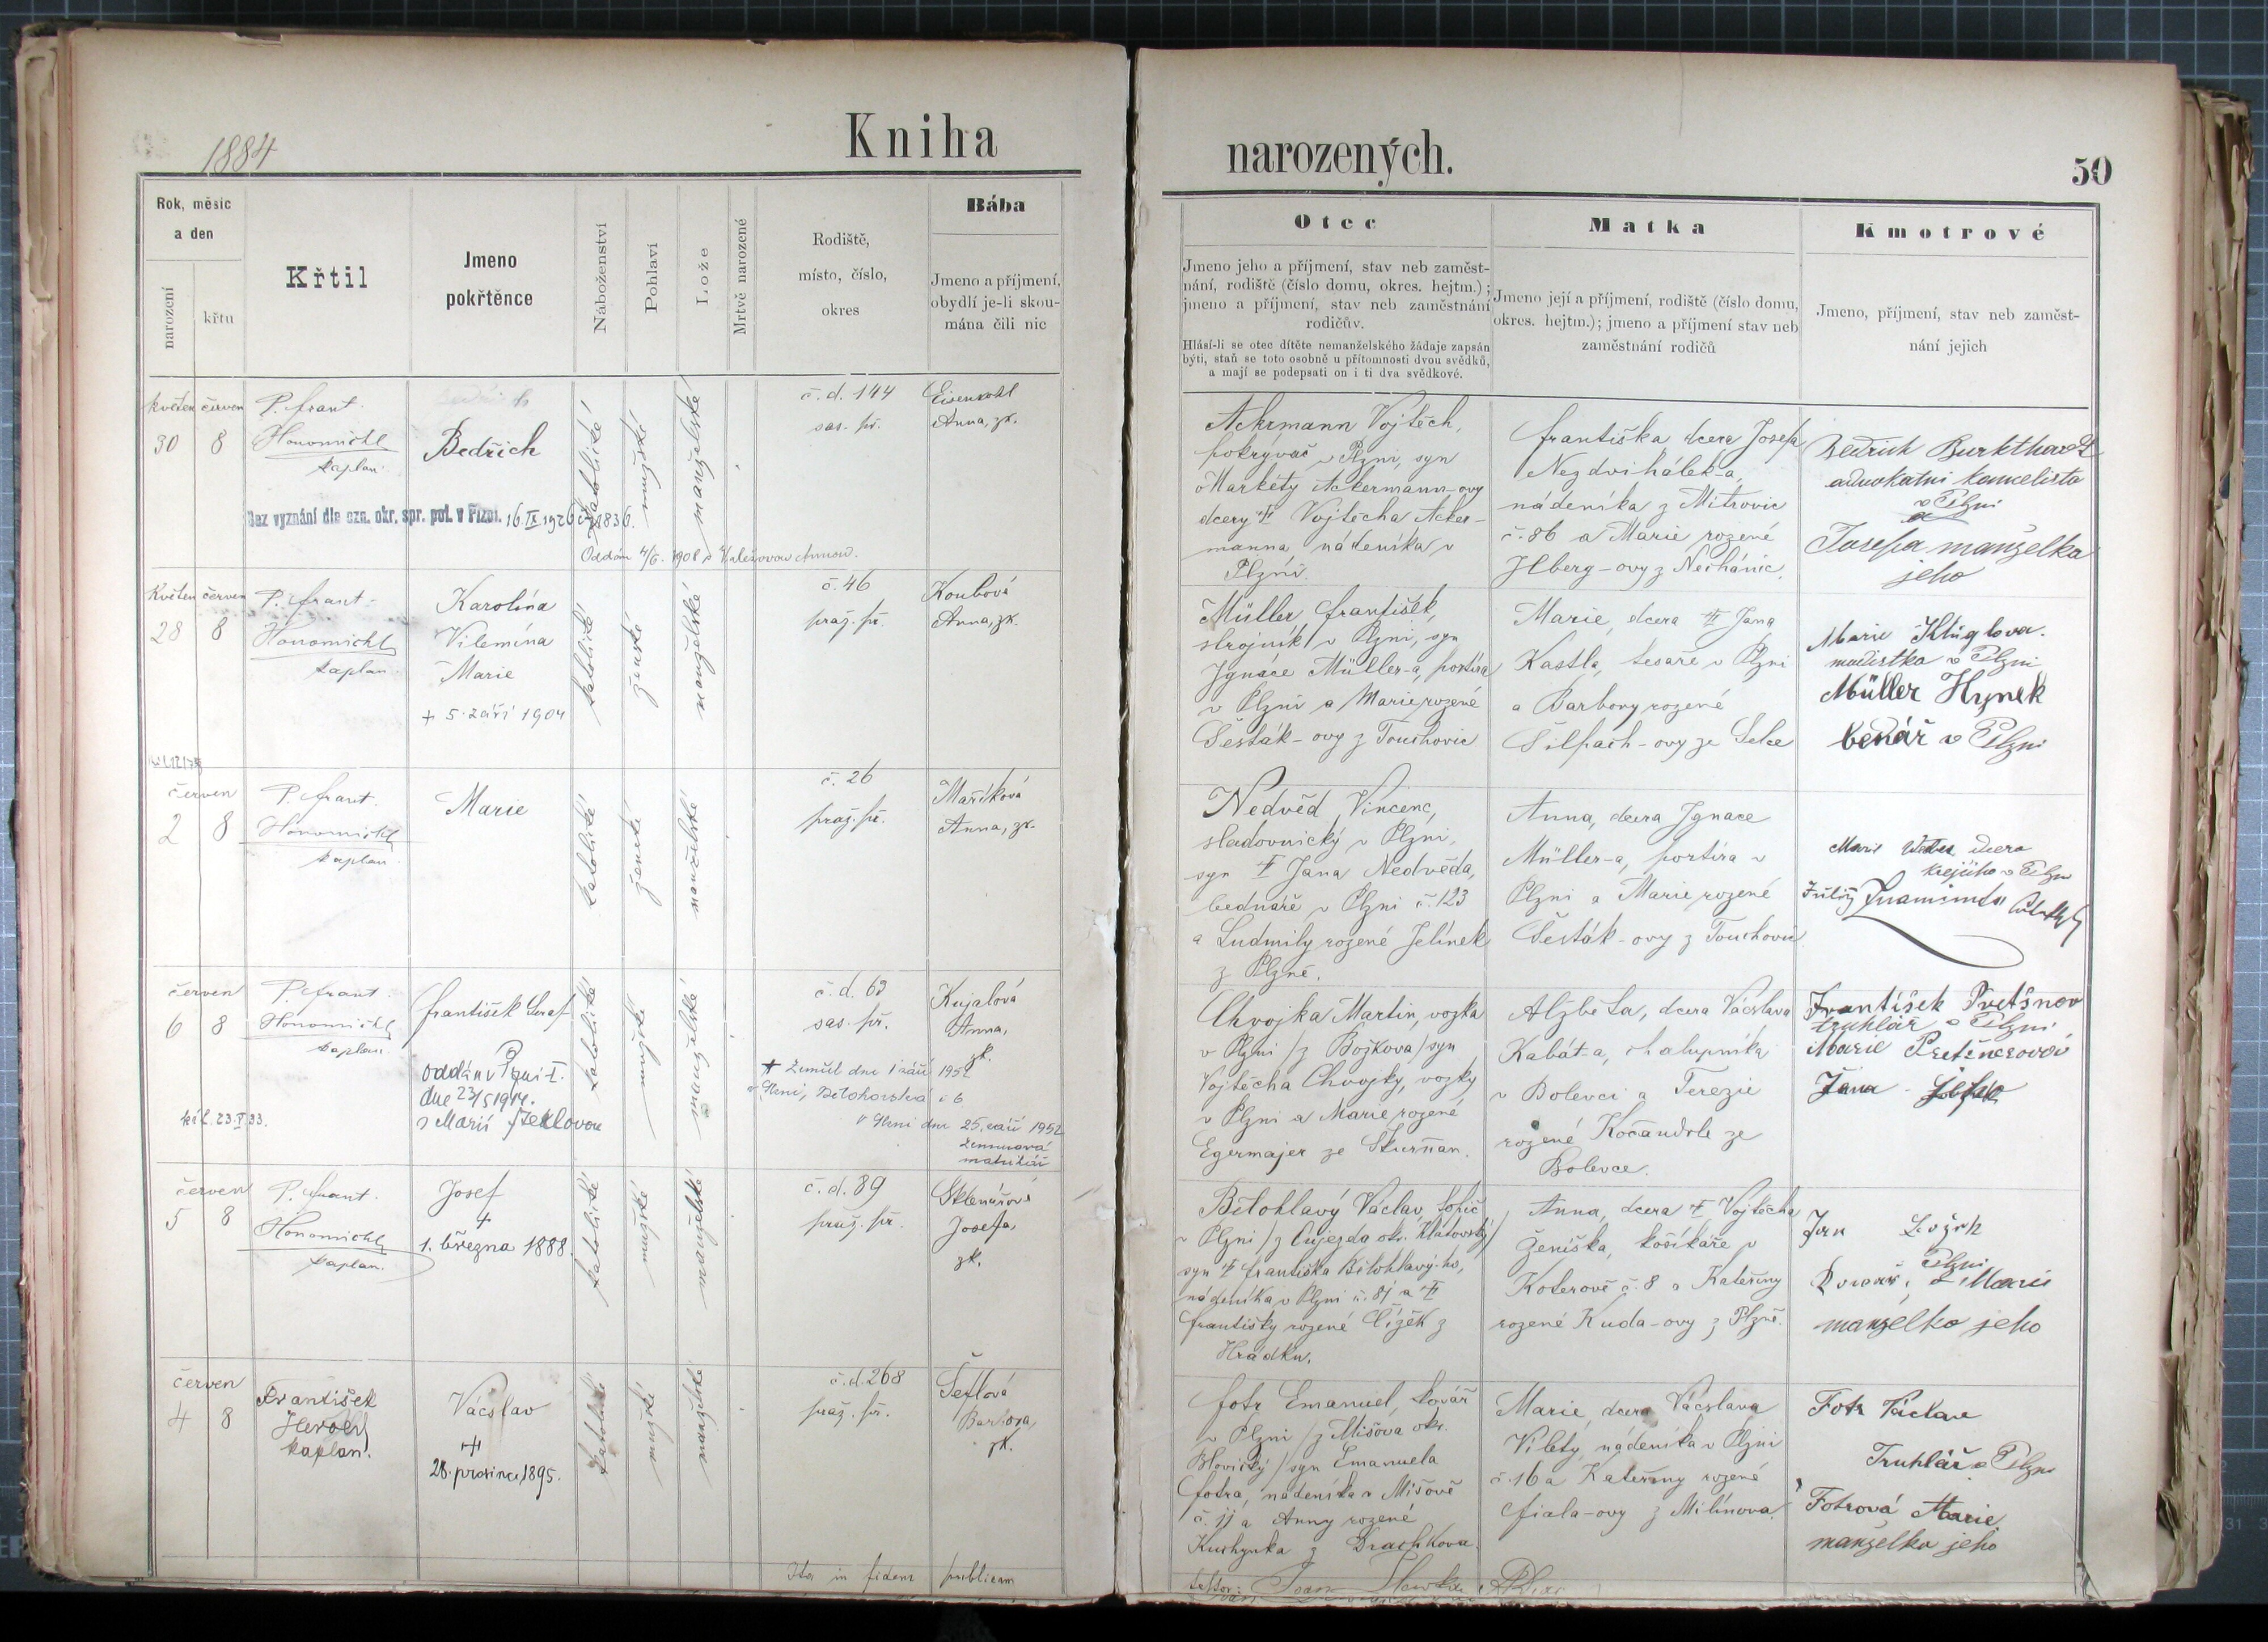 1884
Kniha
narozených.
50
Rok, měsíc
a den
narození
křtu
Křtil
Jmeno
pokřtěnce
Náboženství
Pohlaví
Lože
Mrtvě narozené
Rodiště,
místo, číslo,
okres
Bába
Jmeno a příjmení,
obydlí je-li skou-
mána čili nic
Otec
Jmeno jeho a příjmení, stav neb zaměst-
nání, rodiště (číslo domu, okres. hejtm.);
jmeno a příjmení, stav neb zaměstnání
rodičův.
Hlásí-li se otec dítěte nemanželského žádaje zapsán
býti, staň se toto osobně u přítomnosti dvou svědků,
a mají se podepsati on i ti dva svědkové.
Matka
Jmeno její a příjmení, rodiště (číslo domu,
okres. hejtm.); jmeno a příjmení stav neb
zaměstnání rodičů
Kmotrové
Jmeno, příjmení, stav neb zaměst-
nání jejich
květen červen
30 8
P. Frant.
Honomichl
kaplan.
Bedřich
katolické
mužské
manželské
č. d. 144
sas. př.
Anna, zk.
Bez vyznání dle ozn. okr. spr. pol. v Plzni. 16 IX 1926
Oddán 1908 s Annou.
Ackrmann Vojtěch,
pokrývač v Plzni, syn
Markéty Ackermann-ovy
dcery † Vojtěcha Acker-
manna, nádeníka v
Plzni.
Františka dcera Josefa
Nezdvihálek-a,
nádeníka z Mitrovic
č. 86 a Marie rozené
Ilberg-ovy z Nechánic.
Bedřich Burkthardt
advokatni kancelista
v Plzni
a
Josefa manželka
jeho
Květen červen
28 8
P. Frant.
Honomichl
kaplan
Karolína
Vilemína
Marie
+ 5. září 1904
katolické
ženské
manželské
č. 46
praž. př.
Koubová
Anna, zk.
Müller, František,
strojník v Plzni, syn
Ignáce Müller-a, portíra
v Plzni a Marie rozené
Šesták-ovy z Touchovic
Marie, dcera † Jana
Kastla, tesaře v Plzni
a Barbory rozené
Šilpach-ovy ze Selce
Marie
modistka v Plzni
Müller Hynek
bednář v Plzni
červen
2 8
P. Frant.
Honomichl
kaplan.
Marie
katolické
ženské
manželské
č. 26
praž. př.
Maříková
Anna, zk.
Nedvěd Vincenc,
sladovnický v Plzni,
syn † Jana Nedvěda,
bednáře v Plzni č. 123
a Ludmily rozené Jelínek
z Plzně.
Anna, dcera Ignace
Müller-a, portíra v
Plzni a Marie rozené
Šesták-ovy z Touchovic
Marie dcera
krejčího v Plzni
červen
6 8
P. Frant.
Honomichl
kaplan.
František Seraf
oddán v Plzni I.
dne 23/5 1914.
s Marií
23. V. 33.
katolické
mužské
manželské
č. d. 63
sas. př.
Kujalová
Anna,
zk.
+ Zemřel dne 1 září 1952
v Plzni, Bělohorská č 6
V Plzni dne 25. září 1952
matrikář
Chvojka Martin, vozka
v Plzni /z Božkova/ syn
Vojtěcha Chvojky, vozky
v Plzni a Marie rozené
Egermajer ze Skurňan.
Alžběta, dcera Václava
Kabát-a, chalupníka
v Bolevci a Terezie
rozené Kočandrle ze
Bolevce.
František
truhlář v Plzni
Marie
červen
5 8
P. Frant.
Honomichl
kaplan.
Josef
+
1. března 1888.
katolické
mužské
manželské
č. d. 89
praž. př.
Sklenářová
Josefa,
zk.
Bělohlavý Václav, topič
v Plzni /z Oujezda okr. Klatovský/
syn † Františka Bělohlavý-ho,
nádeníka v Plzni č. 81 a †
Františky rozené Čížek z
Hrádku.
Anna, dcera † Vojtěcha
Ženíška, košíkáře v
Koterově č. 8 a Kateřiny
rozené Kuda-ovy z Plzně.
Jan
Plzni
Marie
manželka jeho
červen
4 8
František
Herold
kaplan.
Vácslav
+
28. prosince 1895.
katolické
mužské
manželské
č. d. 268
praž. př.
Šetlová
Barbora,
zk.
Fotr Emanuel, kovář
v Plzni /z Mišova okr.
Blovický/ syn Emanuela
Fotra, nádeníka v Mišově
č. 11 a Anny rozené
Kuchynka z Drachkova.
Marie, dcera Vácslava
Vilety, nádeníka v Plzni
č. 16 a Kateřiny rozené
Fiala-ovy z Milínova.
Fotr Václav
Truhlář v Plzni
Fotrová Marie
manželka jeho
Ita in fidem publicam